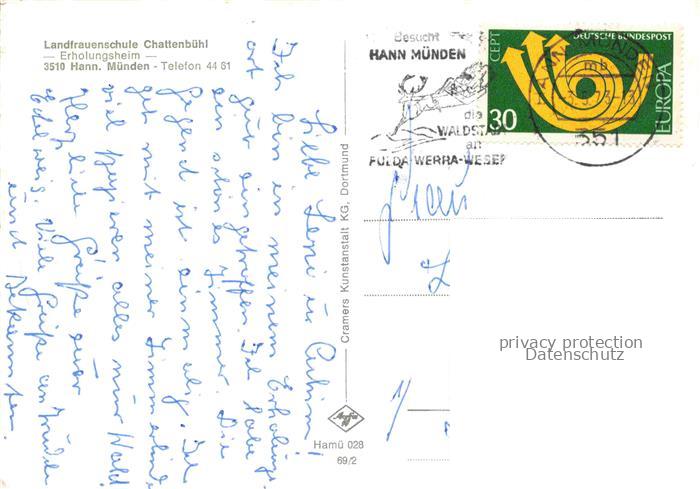 Landfrauenschule Chattenbühl
— Erholungsheim —
3510 Hann. Münden - Telefon 44 61
Liebe Leni u.
Ich bin in meinem Erholungs
ort gut eingetroffen. Ich habe
ein schönes Zimmer. Die
Gegend ist einmalig. Ich
geh mit meiner Zimmer
viel spazieren alles nur Wald
Herzliche Grüße euer
Edelweis. Viele Grüße an
und Bekannten.
Cramers Kunstanstalt KG, Dortmund
Agfa
Hamü 028
69/2
Besucht
HANN MÜNDEN
die
WALDSTADT
an
FULDA-WERRA-WESER
CEPT
DEUTSCHE BUNDESPOST
30
EUROPA
HANN. MÜNDEN
mb
351
Frau
L
privacy protection
Datenschutz